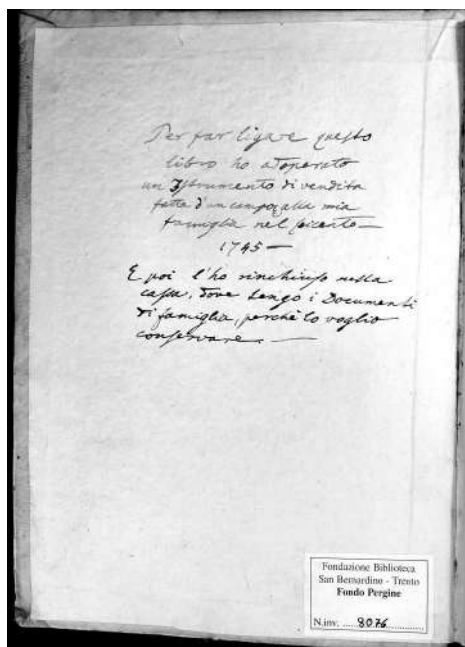 Per far ligare questo
libro ho adoperato
un Istrumento di vendita
fatta d'un campo, alla mia
famiglia nel seicento —
1745 —
E poi l'ho rinchiuso nella
cassa, dove tengo i Documenti
di famiglia, perchè lo voglio
conservare. —
Fondazione Biblioteca
San Bernardino - Trento
Fondo Pergine
N.inv. ......8076...............